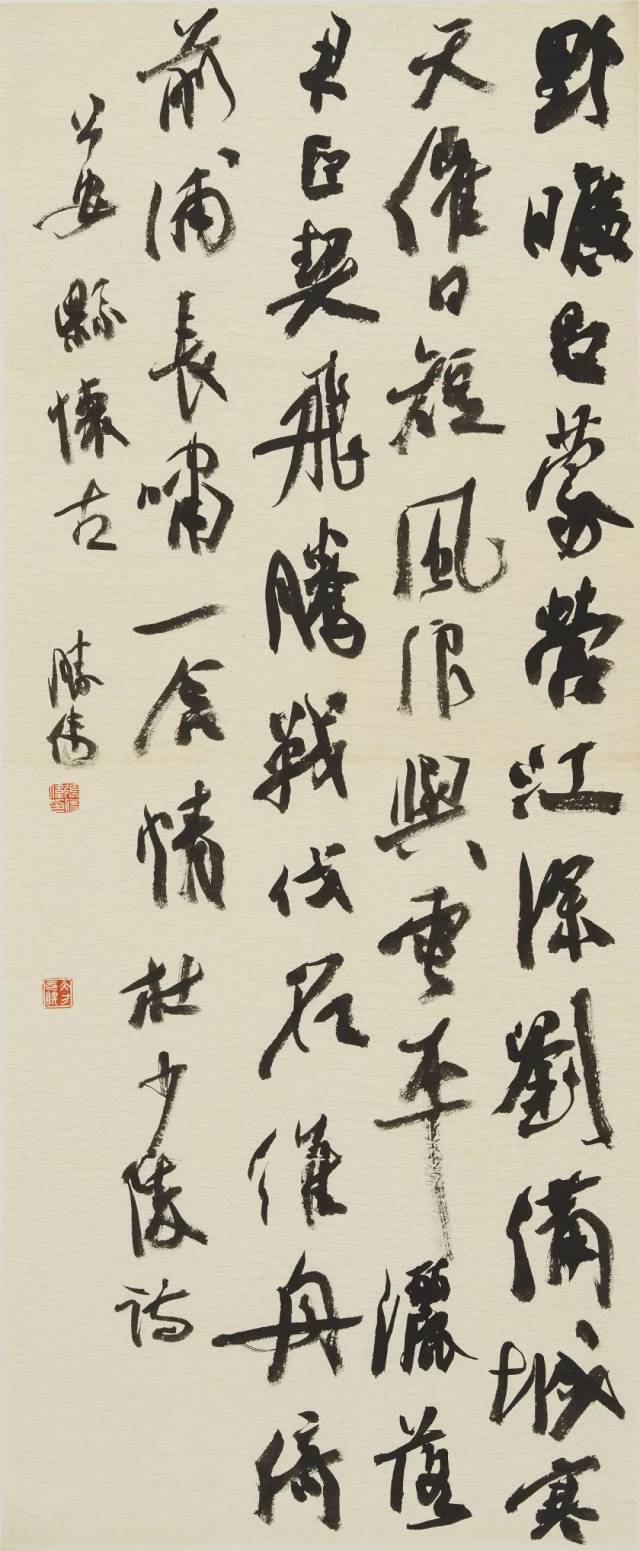 野曠呂蒙營江深劉備城寒
天催日短風浪與雲平灑落
君臣契飛騰戰伐名維舟倚
前浦長嘯一含情杜少陵詩
公安縣懷古 勝偉